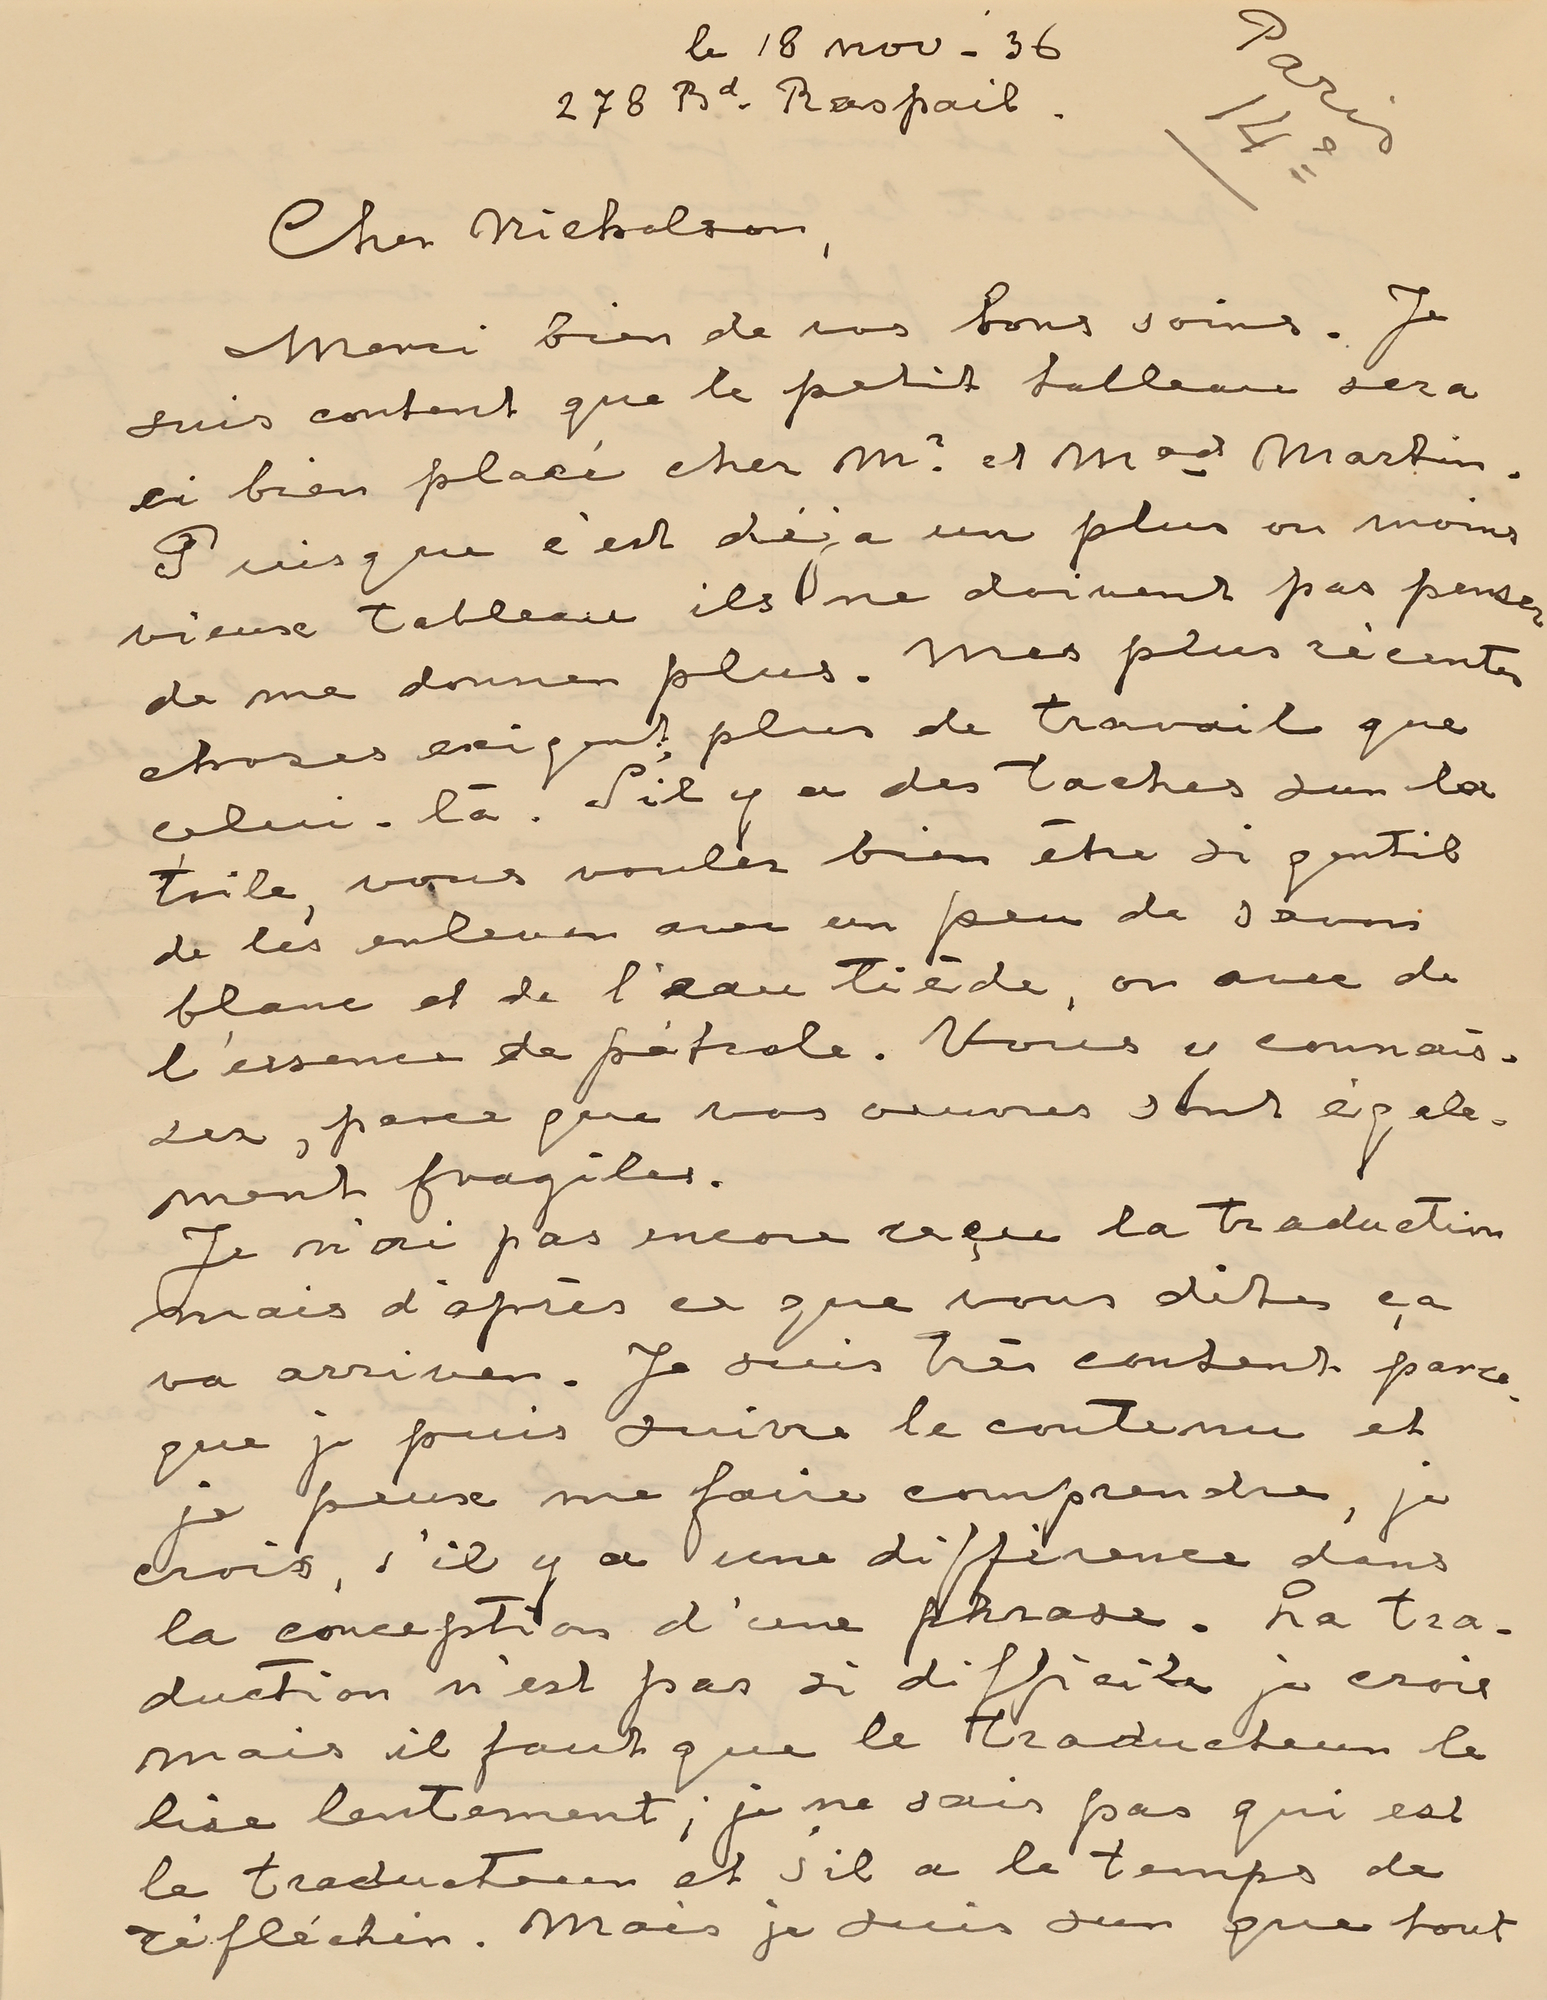 le 18 nov - 36
278 Bd. Raspail.
Paris
14e
Cher Nicholson,
Merci bien de vos bons soins. Je
suis content que le petit tableau sera
si bien placé chez Mr. et Mad Martin.
Puisque c'est déja un plus ou moins
vieux tableau ils ne doivent pas penser
de me donner plus. Mes plus récentes
choses exigent plus de travail que
celui-là. S'il y a des taches sur la
toile, vous voulez bien être si gentil
de les enlever avec un peu de savon
blanc et de l'eau tiède, ou avec de
l'essence de pétrole. Vous y connais-
sez, parce que vos œuvres sont égale-
ment fragiles.
Je n'ai pas encore reçue la traduction
mais d'après ce que vous dites ça
va arriver. Je suis très content parce-
que je puis suivre le contenu et
je peux me faire comprendre, je
crois, s'il y a une différence dans
la conception d'une phrase. La tra-
duction n'est pas si difficile je crois
mais il faut que le traducteur le
lise lentement; je ne sais pas qui est
le traducteur et s'il a le temps de
réfléchir. Mais je suis sur que tout